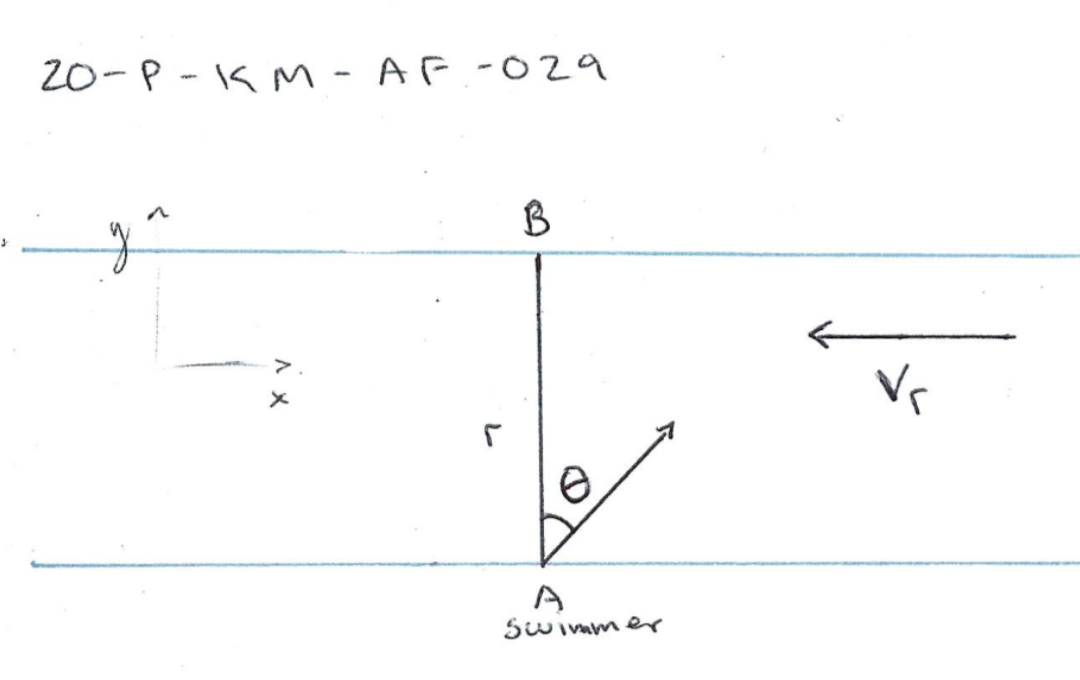 20-P-KM-AF-029
B
y
x
Vr
r
θ
A
swimmer